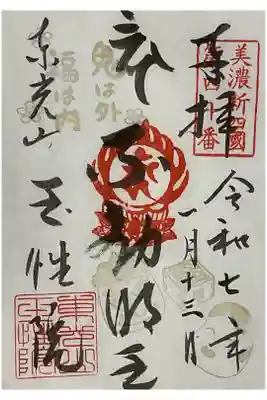 奉拝
美濃新四國
第四十番
令和七年
一月十三日
不動明王
鬼は外
福は内
東光山
玉性院